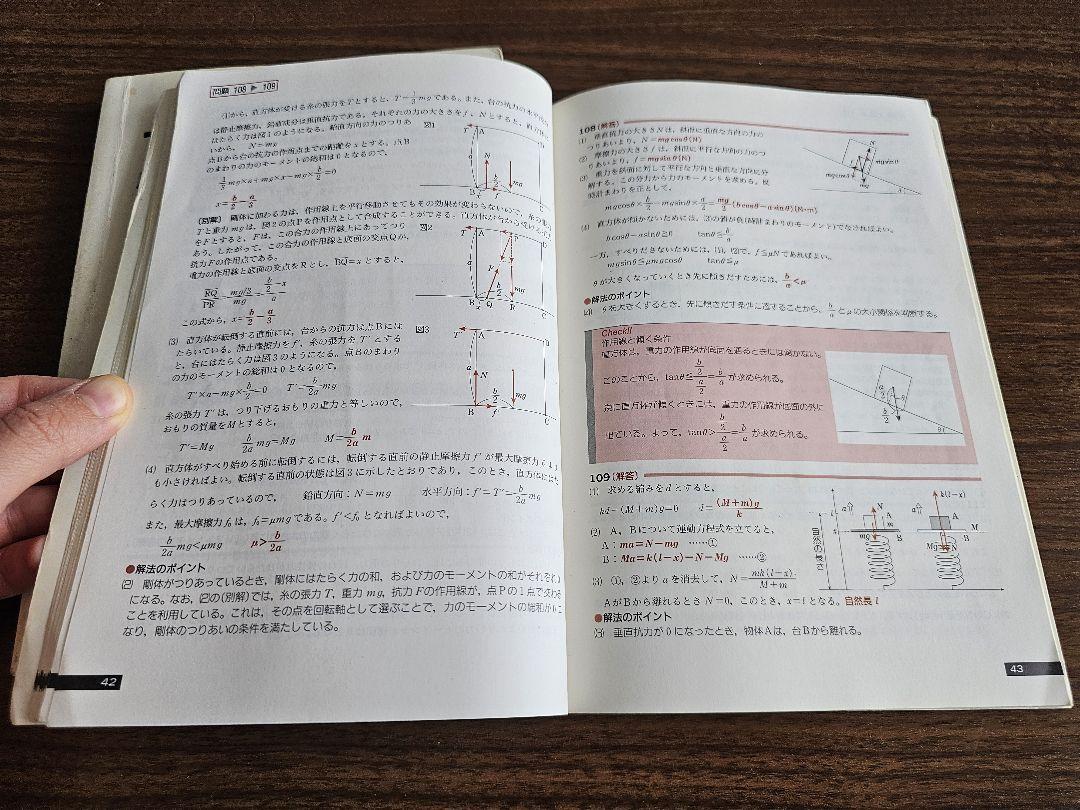 問題 108 ▶ 109
(1)から、直方体が受ける糸の張力をTとすると、T=1/3 mgである。また、台の抗力の水平
は静止摩擦力、鉛直成分は垂直抗力である。それぞれの力の大きさをf、Nとすると、直方体
はたらく力は図1のようになる。鉛直方向の力のつりあ
いから、 N=mg
点Bから台の抗力の作用点までの距離をxとする。点B
のまわりの力のモーメントの総和は0となるので、
1/3 mg×a+mg×x−mg×b/2=0
x=b/2−a/3
(別解) 剛体に加わる力は、作用線上を平行移動させてもその効果が変わらないので、糸の張力
Tと重力mgは、図2の点Pを作用点として合成することができる。直方体が台から受ける力
をFとすると、Fは、この合力の作用線上にあってつり
あう。したがって、この合力の作用線と底面の交点Qが、
抗力Fの作用点である。
重力の作用線と底面の交点をRとし、BQ=xとすると、
RQ/PR=(mg/3)/mg=(b/2−x)/a
この式から、x=b/2−a/3
(3) 直方体が転倒する直前には、台からの抗力は点Bには
たらいている。静止摩擦力をf'、糸の張力をT'とする
と、台にはたらく力は図3のようになる。点Bのまわり
の力のモーメントの総和は0となるので、
T'×a−mg×b/2=0 T'=b/2a mg
糸の張力T'は、つり下げるおもりの重力と等しいので、
おもりの質量をMとすると、
T'=Mg b/2a mg=Mg M=b/2a m
(4) 直方体がすべり始める前に転倒するには、転倒する直前の静止摩擦力f'が最大摩擦力f₀より
も小さければよい。転倒する直前の状態は図3に示したとおりであり、このとき、直方体には
らく力はつりあっているので、 鉛直方向:N=mg 水平方向:f'=T'=b/2a mg
また、最大摩擦力f₀は、f₀=μmgである。f'<f₀となればよいので、
b/2a mg<μmg μ>b/2a
●解法のポイント
(2) 剛体がつりあっているとき、剛体にはたらく力の和、および力のモーメントの和がそれぞれ
になる。なお、(2)の(別解)では、糸の張力T、重力mg、抗力Fの作用線が、点Pの1点で交わる
ことを利用している。これは、その点を回転軸として選ぶことで、力のモーメントの総和が0に
なり、剛体のつりあいの条件を満たしている。
図1
T A
a N
b/2
B f mg C
図2
T A P
F
b/2
B Q R mg C
図3
T' A
a N
b/2
B f' mg C
42
108 (解答)
(1) 垂直抗力の大きさNは、斜面に垂直な方向の力の
つりあいより、N=mgcosθ(N)
(2) 摩擦力の大きさfは、斜面に平行な方向の力のつ
りあいより、f=mgsinθ(N)
(3) 重力を斜面に対して平行な方向と垂直な方向に分
解する。この分力から力のモーメントを求める。反
時計まわりを正として、
mgcosθ×b/2−mgsinθ×a/2=mg/2(bcosθ−asinθ)(N・m)
(4) 直方体が傾かないためには、(3)の値が負(時計まわりのモーメント)でなければよい。
bcosθ−asinθ≧0 tanθ≦b/a
一方、すべりださないためには、(1)、(2)で、f≦μNであればよい。
mgsinθ≦μmgcosθ tanθ≦μ
θが大きくなっていくとき先に傾きだすためには、b/a<μ
●解法のポイント
(4) θを大きくするとき、先に傾きだす条件に達することから、b/aとμの大小関係を判断する。
mgsinθ
mgcosθ
mg
Check!!
作用線と傾く条件
直方体は、重力の作用線が底面を通るときには傾かない。
このことから、tanθ≦(b/2)/(a/2)=b/aが求められる。
逆に直方体が傾くときには、重力の作用線が底面の外に
出ている。よって、tanθ>(b/2)/(a/2)=b/aが求められる。
109 (解答)
(1) 求める縮みをdとすると、
kd−(M+m)g=0 d=(M+m)g/k
(2) A、Bについて運動方程式を立てると、
A:ma=N−mg ……①
B:Ma=k(l−x)−N−Mg ……②
(3) ①、②よりaを消去して、N=mk(l−x)/(M+m)
AがBから離れるときN=0、このとき、x=lとなる。自然長l
●解法のポイント
(3) 垂直抗力が0になったとき、物体Aは、台Bから離れる。
自然の長さ
l
a N A
mg B
k(l−x)
a A
M
Mg N B
x
0
43